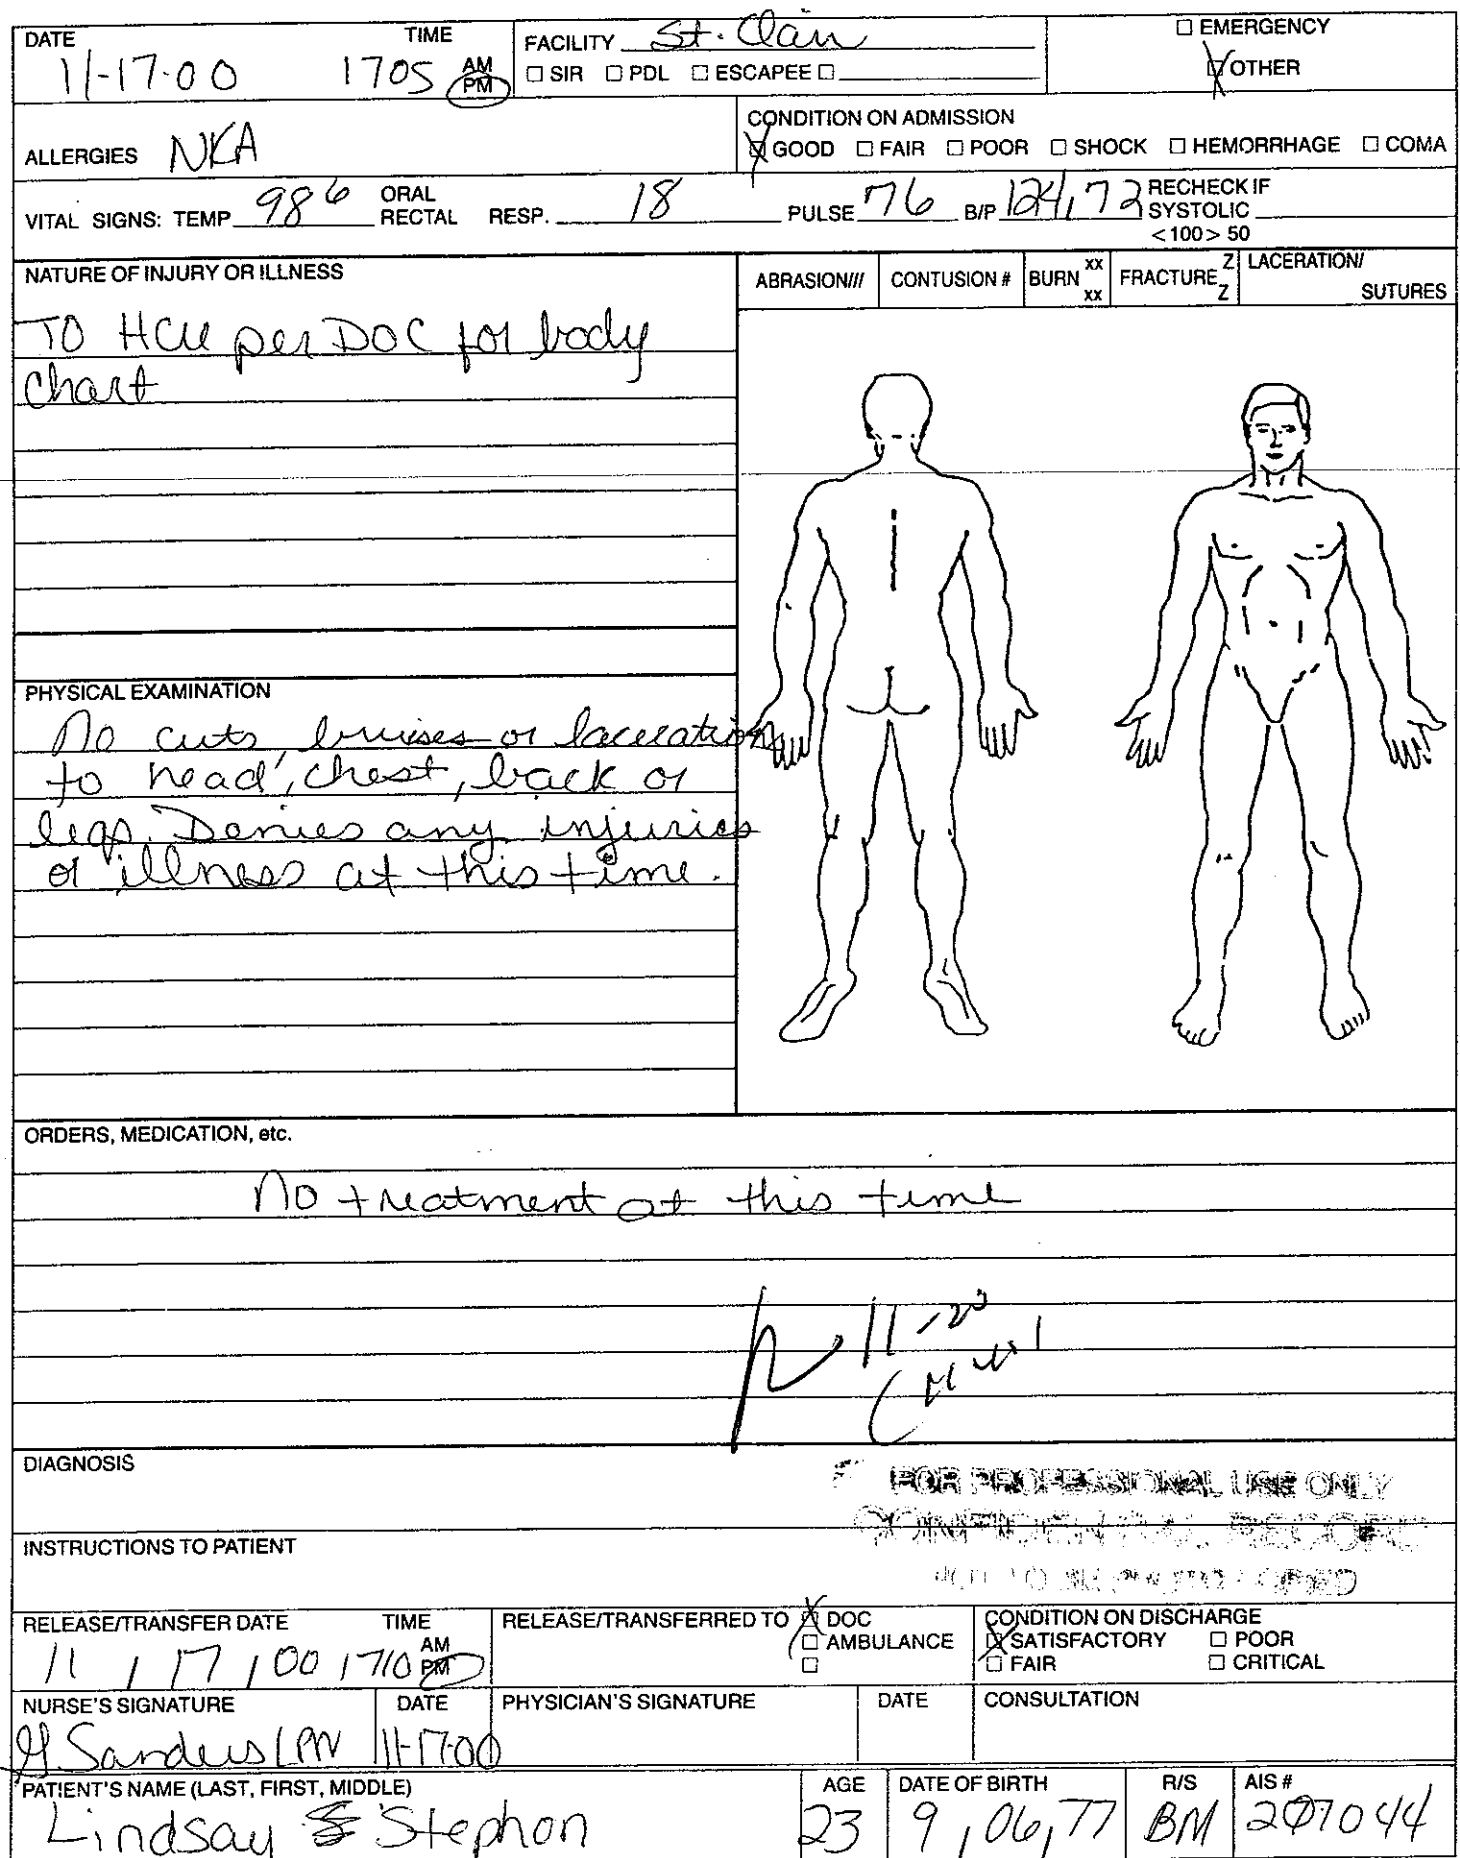 DATE TIME FACILITY St. Clair ☐ EMERGENCY
11-17-00 1705 AM PM ☐ SIR ☐ PDL ☐ ESCAPEE ☐ ☒ OTHER
ALLERGIES NKA CONDITION ON ADMISSION
☒ GOOD ☐ FAIR ☐ POOR ☐ SHOCK ☐ HEMORRHAGE ☐ COMA
VITAL SIGNS: TEMP 986 ORAL RECTAL RESP. 18 PULSE 76 B/P 124/72 RECHECK IF SYSTOLIC <100> 50
NATURE OF INJURY OR ILLNESS ABRASION/// CONTUSION # BURN xx xx FRACTURE Z Z LACERATION/ SUTURES
TO HCU per DOC for body
chart
PHYSICAL EXAMINATION
No cuts, bruises or laceration
to head, chest, back or
legs. Denies any injuries
or illness at this time.
ORDERS, MEDICATION, etc.
No treatment at this time
11-20
DIAGNOSIS
FOR PROFESSIONAL USE ONLY
CONFIDENTIAL RECORD
INSTRUCTIONS TO PATIENT
RELEASE/TRANSFER DATE TIME RELEASE/TRANSFERRED TO ☒ DOC CONDITION ON DISCHARGE
11/17/00 1710 AM PM ☐ AMBULANCE ☒ SATISFACTORY ☐ POOR
☐ ☐ FAIR ☐ CRITICAL
NURSE'S SIGNATURE DATE PHYSICIAN'S SIGNATURE DATE CONSULTATION
Sanders LPN 11-17-00
PATIENT'S NAME (LAST, FIRST, MIDDLE) AGE DATE OF BIRTH R/S AIS #
Lindsay Stephon 23 9/06/77 BM 207044